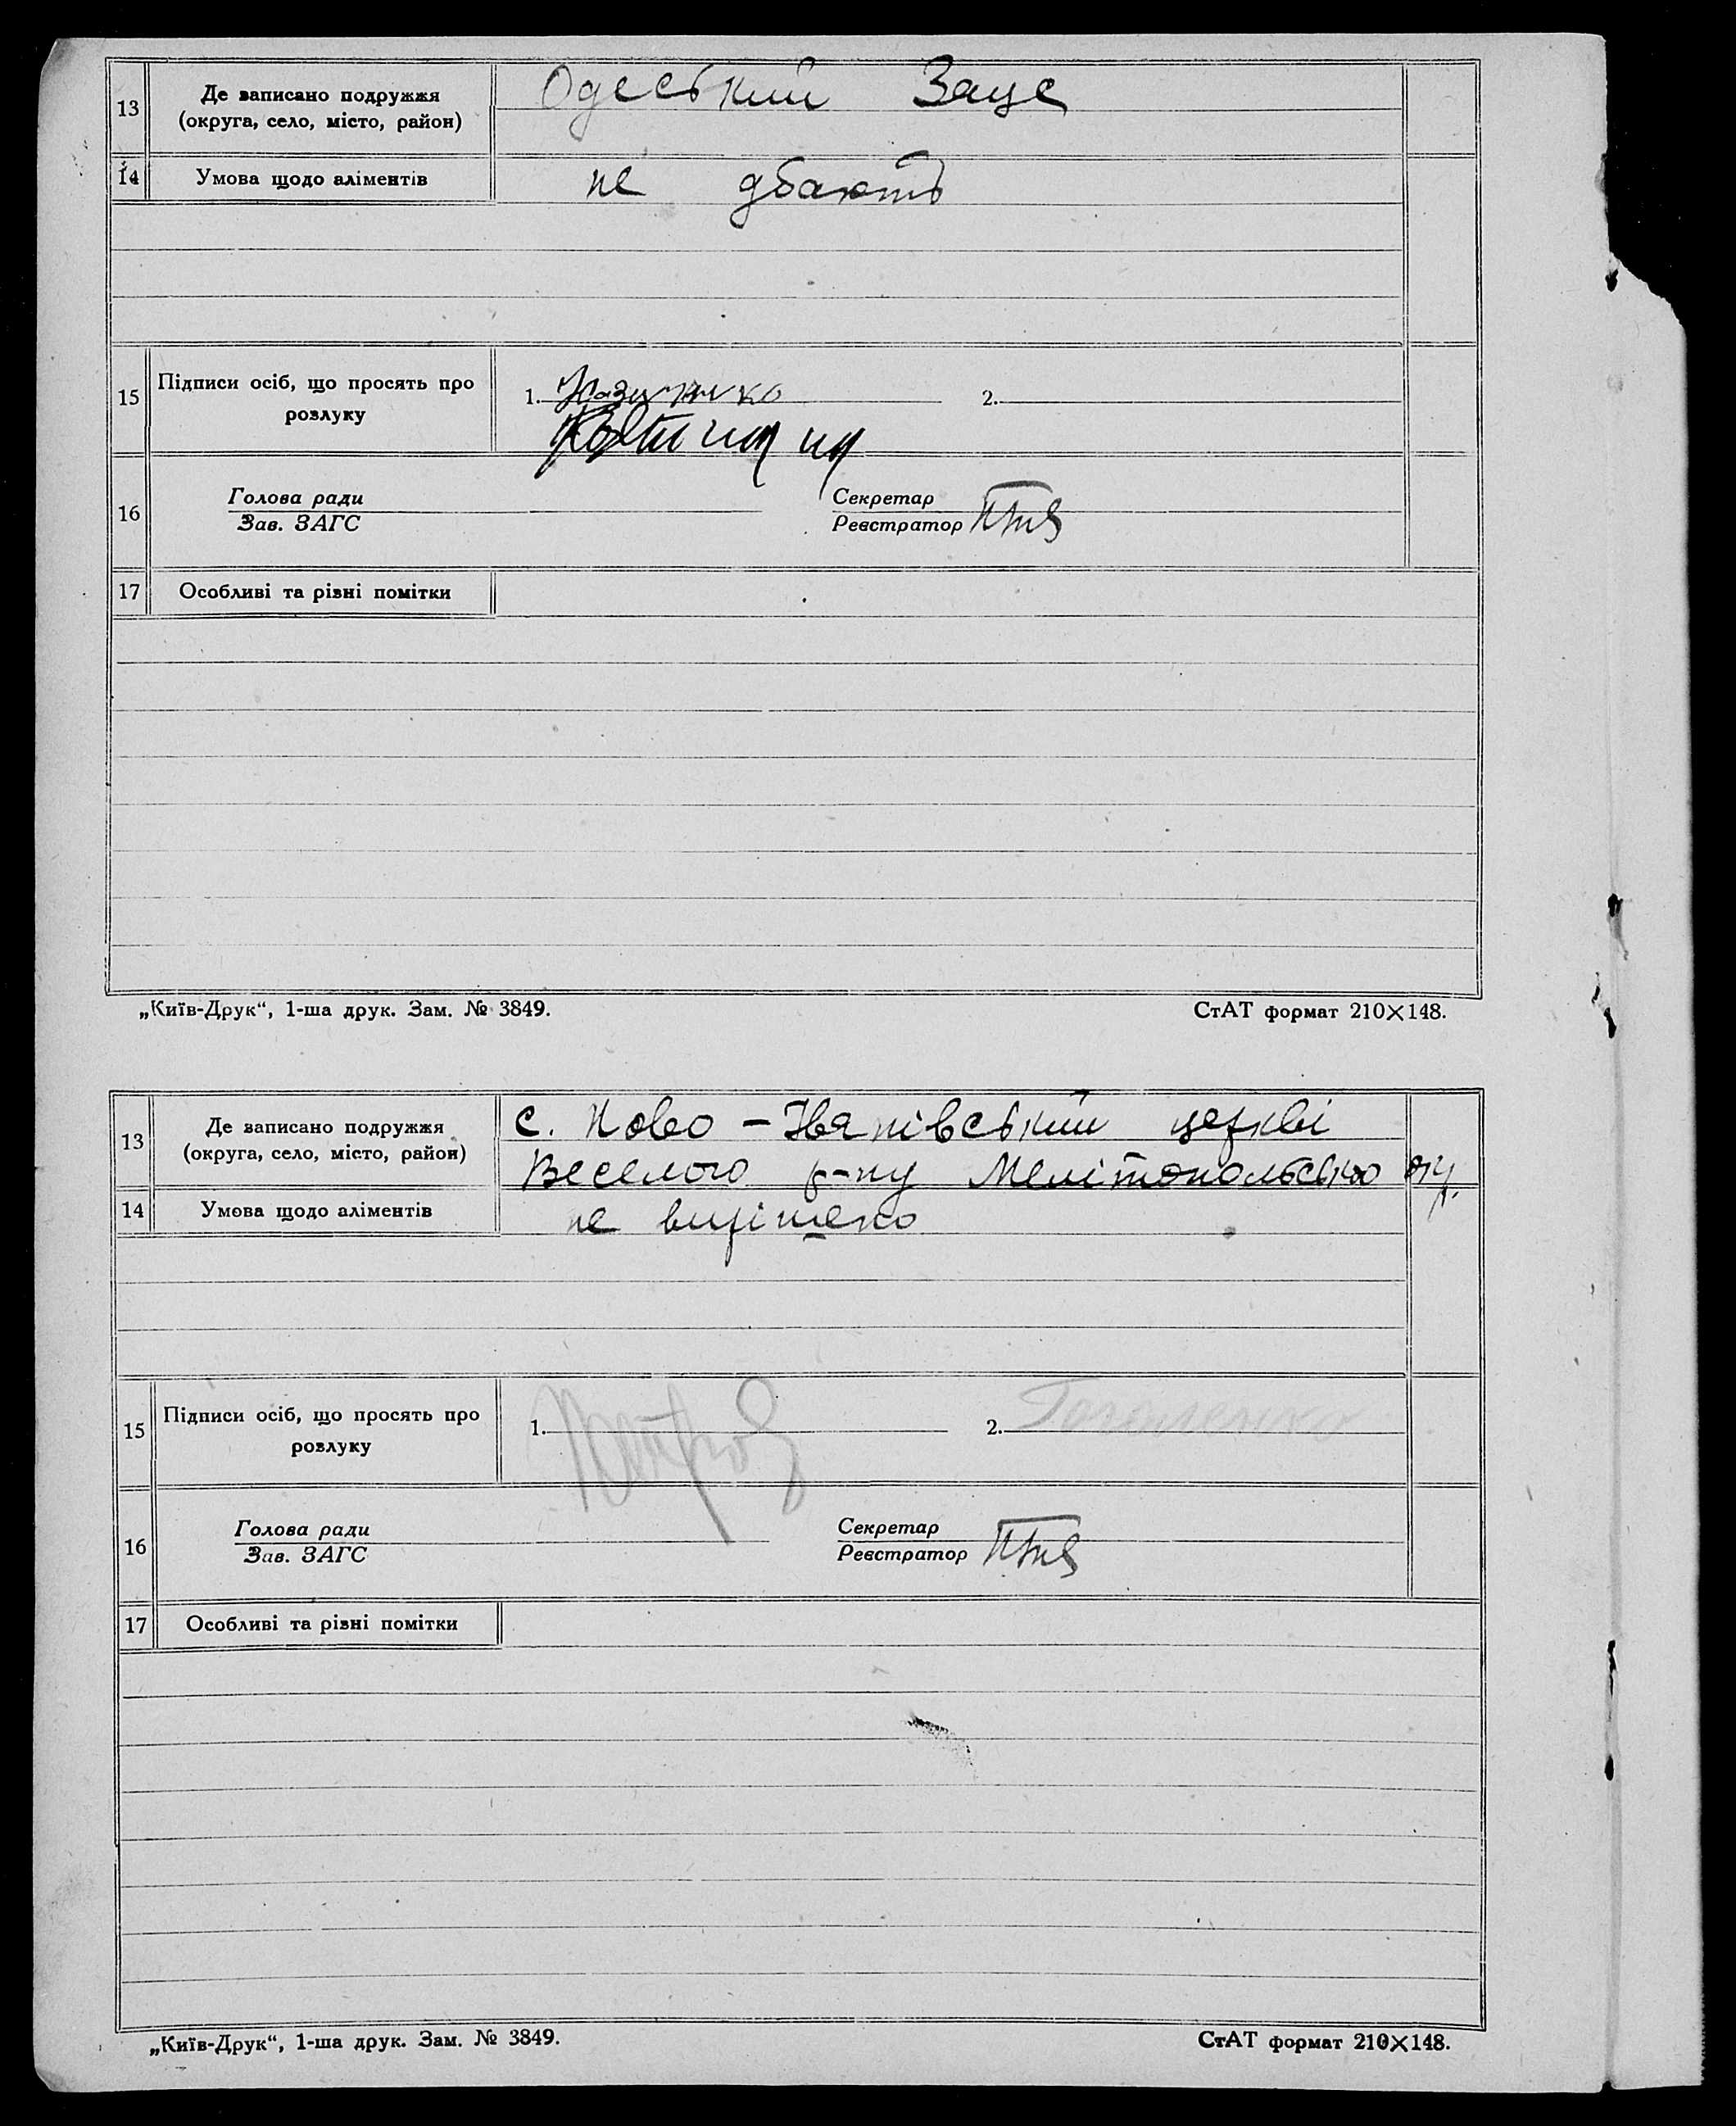 13 Де записано подружжя (округа, село, місто, район) Одеський Загс
14 Умова щодо аліментів не дбають
15 Підписи осіб, що просять про розлуку 1. 2.
16 Голова ради Секретар
Зав. ЗАГС Реєстратор
17 Особливі та різні помітки
„Київ-Друк“, 1-ша друк. Зам. № 3849. СтАТ формат 210×148.
13 Де записано подружжя (округа, село, місто, район) с. Ново-Іванівський церкві
Веселого р-ну Мелітопольсько
14 Умова щодо аліментів не вирішено
15 Підписи осіб, що просять про розлуку 1. 2.
16 Голова ради Секретар
Зав. ЗАГС Реєстратор
17 Особливі та різні помітки
„Київ-Друк“, 1-ша друк. Зам. № 3849. СтАТ формат 210×148.